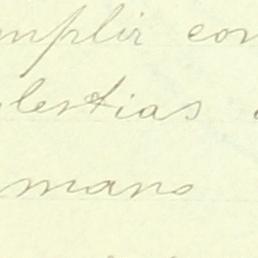 mplir con
lestias
mano